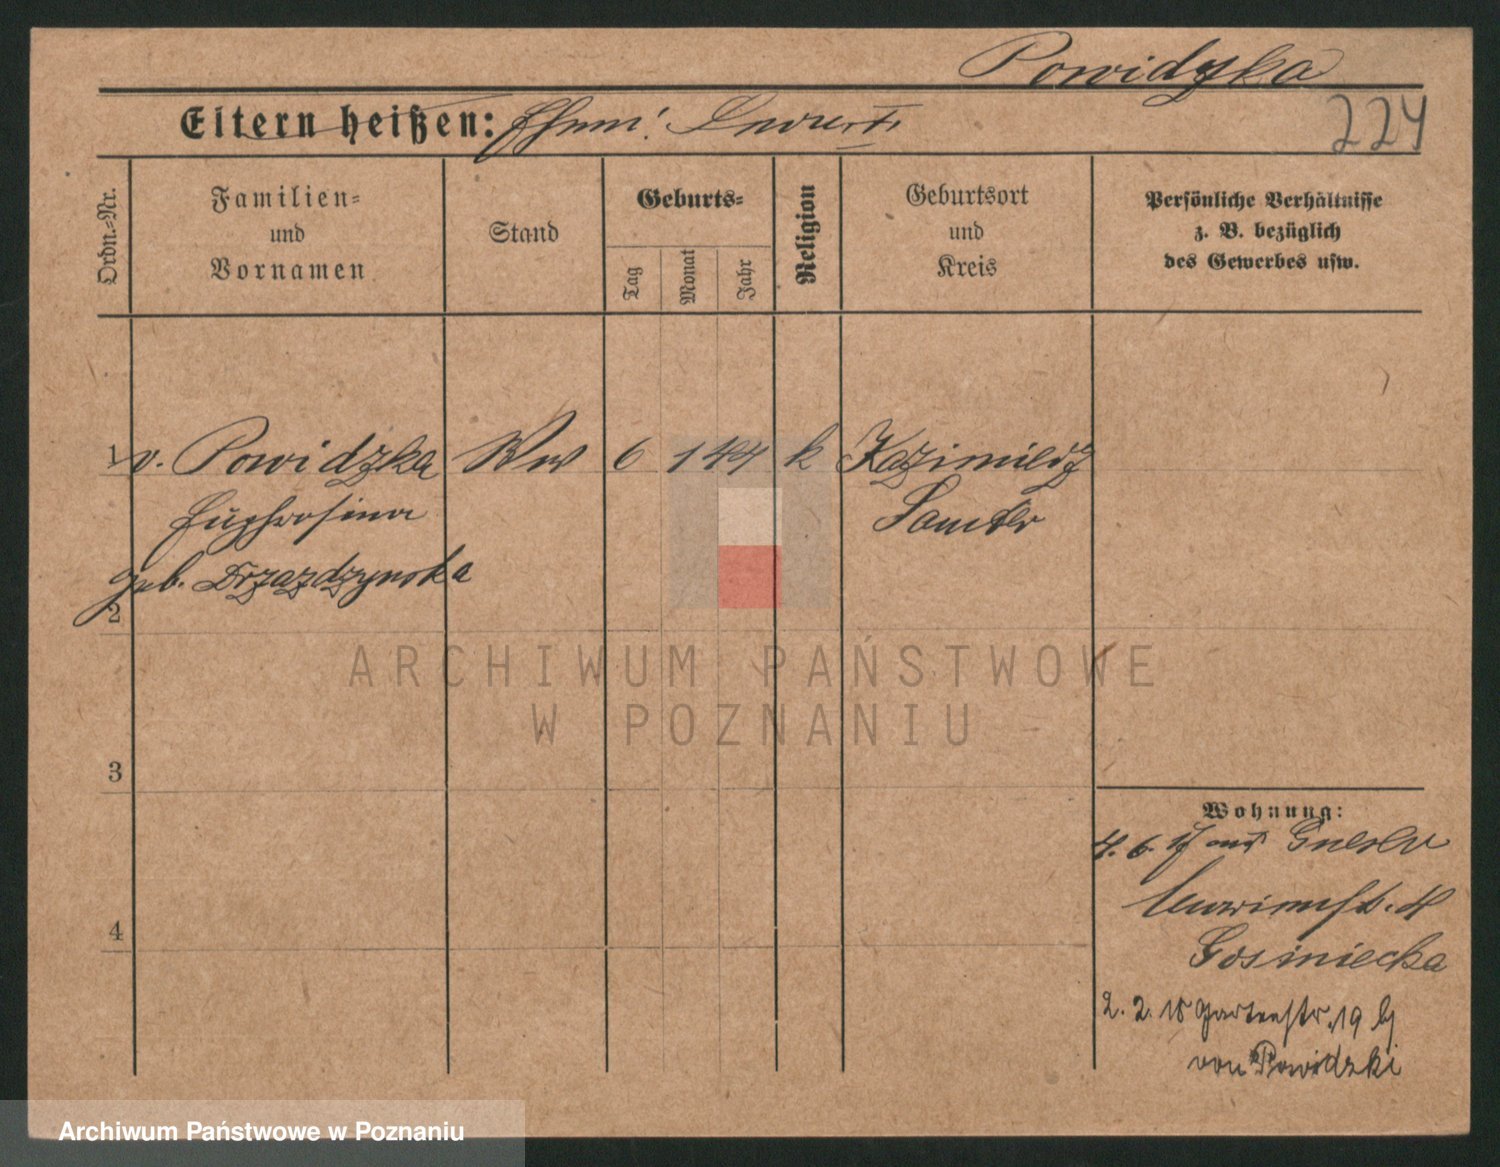 Powidzka
Eltern heißen:
224
Ordn.-Nr.
Familien-
und
Vornamen
Stand
Geburts-
Tag
Monat
Jahr
Religion
Geburtsort
und
Kreis
Persönliche Verhältnisse
z. B. bezüglich
des Gewerbes usw.
1 v. Powidzka Ww 6 1 44 k Kazimierz
Euphrosina Samter
geb. Drzazdzynska
2
3
4
Wohnung:
4. 6. 17 aus Gnesen
4
Gosiniecka
2. 2. 18 Gartenstr. 19 bj
von Powidzki
ARCHIWUM PAŃSTWOWE
W POZNANIU
Archiwum Państwowe w Poznaniu